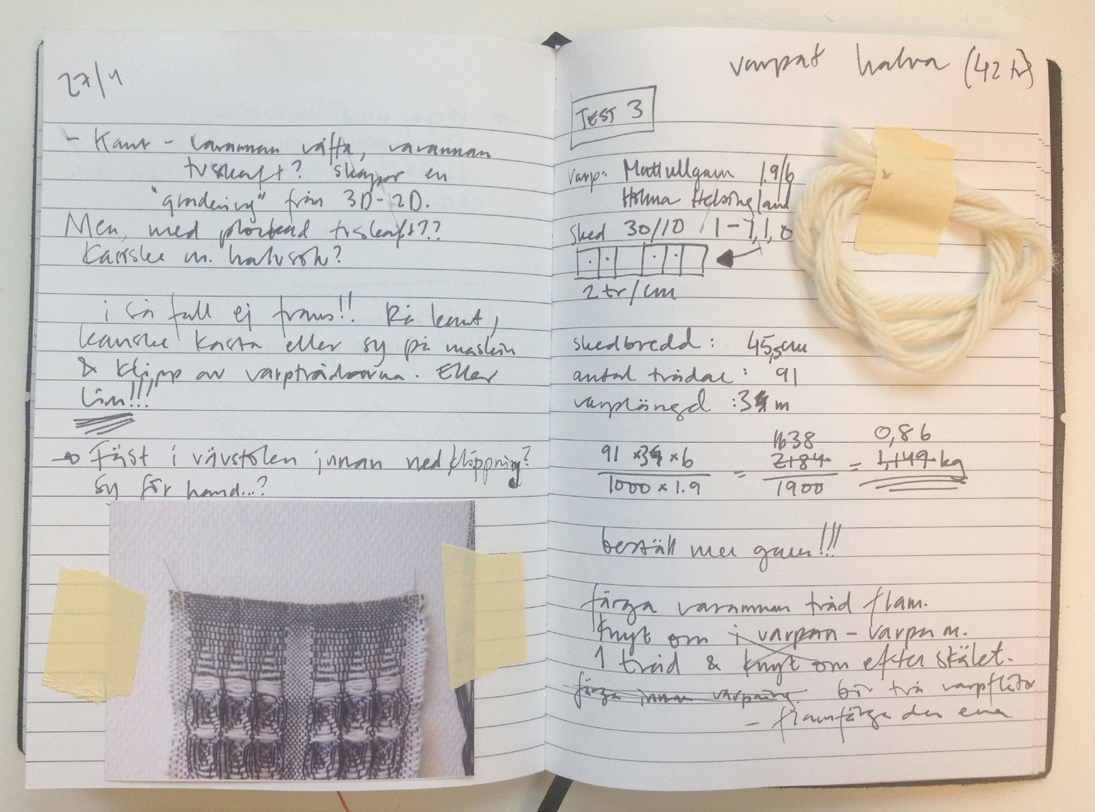 27/1
- Kant - varannan väfta, varannan
tvskaft? skapar en
"gradering" från 3D-2D.
Men, med plockad tvskaft??
Kanske m. halvsolv?
i så fall ej frans!! Rå kant,
kanske kasta eller sy på maskin
& klipp av varptrådarna. Eller
Lim!!!
→ Fäst i vävstolen innan nedklippning?
Sy för hand...?
varpat halva (42 tr)
TEST 3
varp: Mattullgarn 1.9/6
Holma Helsingland
sked 30/10 1-1,1,0
2 tr/cm
skedbredd: 45,5 cm
antal trådar: 91
varplängd: 3 m
91 × 3 × 6 / 1000 × 1.9 = 1638 2184 / 1900 = 0,86 1,149 kg
beställ mer garn!!!
färga varannan tråd flam.
Knyt om i varpan - varpa m.
1 tråd & knyt om efter skälet.
färga innan varpning. för två varpflätor
- flamfärga den ena